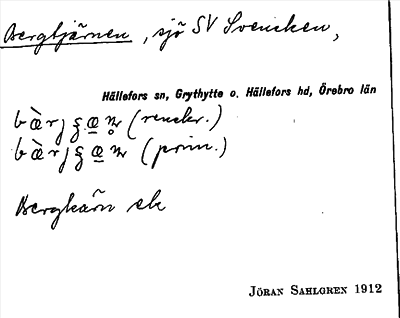 Bergtjärnen, sjö SV Svencken,
Hällefors sn, Grythytte o. Hällefors hd, Örebro län
(renskr.)
(prim.)
Bergkärn ek
JÖRAN SAHLGREN 1912